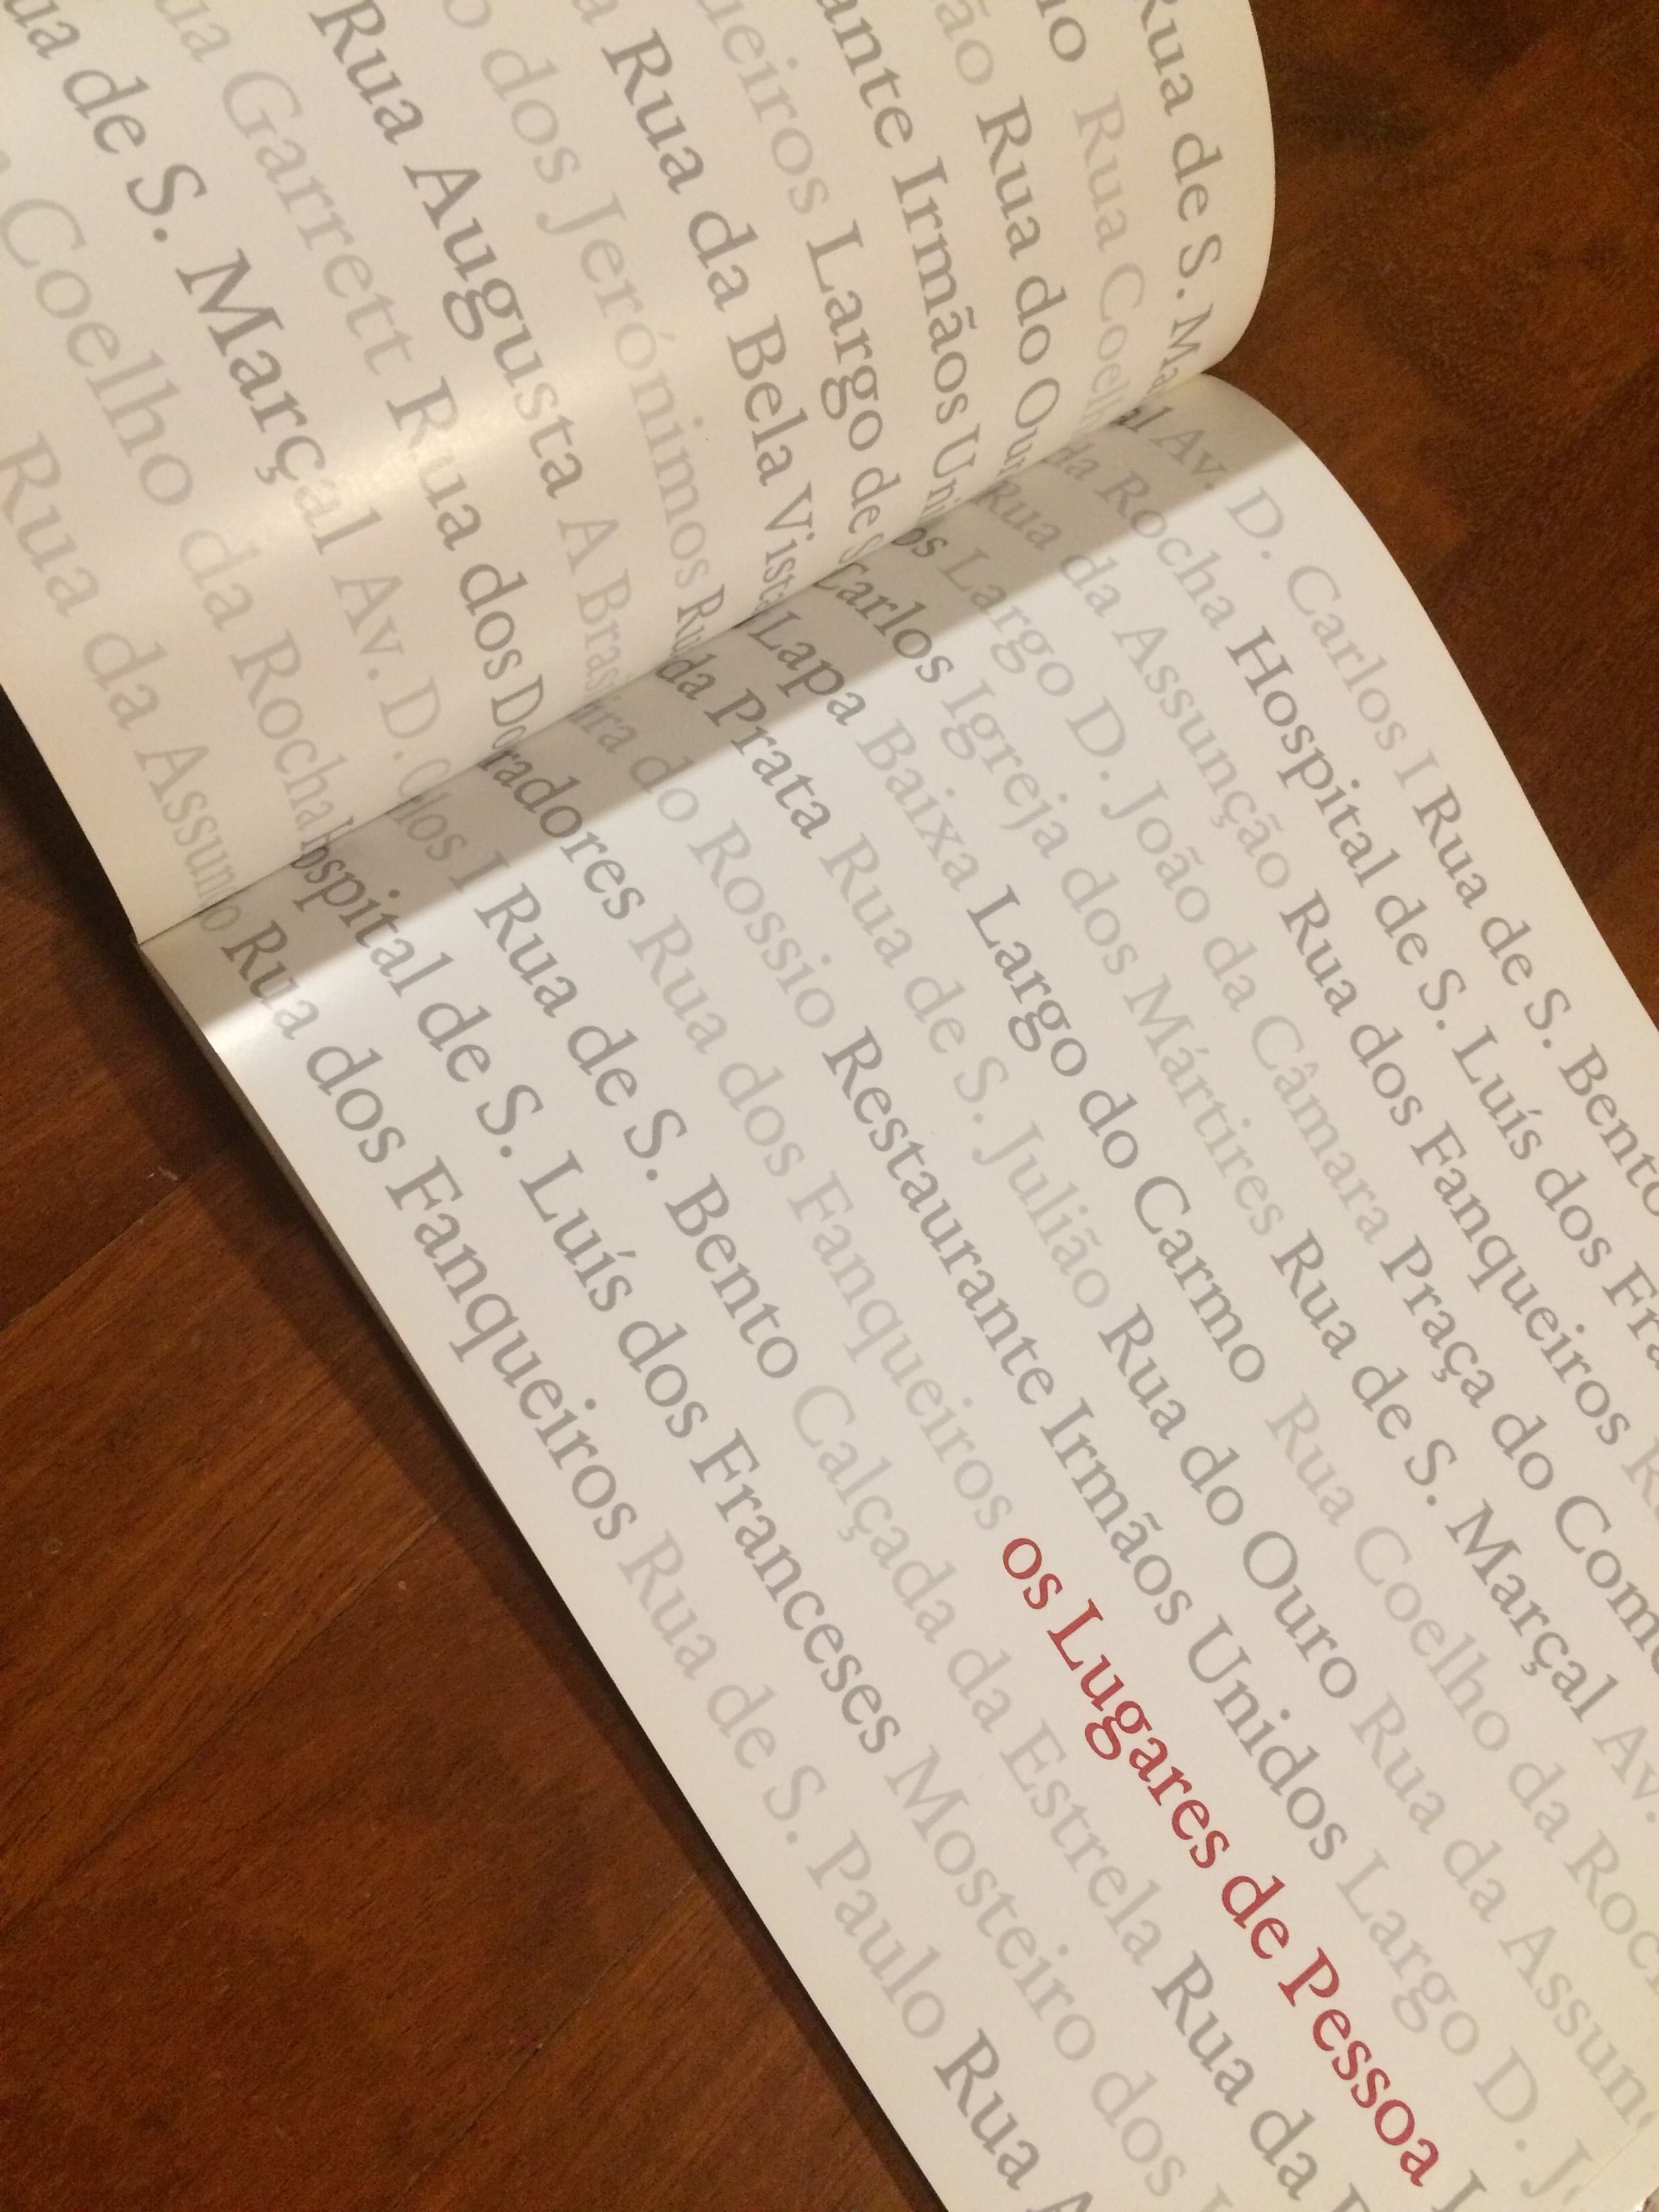 Rua de S. Marçal Av. D. Carlos I Rua de S. Bento
Rua Coelho da Rocha Hospital de S. Luís dos Fra
ão Rua do Ouro Rua da Assunção Rua dos Fanqueiros R
ante Irmãos Unidos Largo D. João da Câmara Praça do Come
ueiros Largo de S. Carlos Igreja dos Mártires Rua de S. Marçal Av.
a Rua da Bela Vista Lapa Baixa Largo do Carmo Rua Coelho da Roc
o dos Jerónimos Rua da Prata Rua de S. Julião Rua do Ouro Rua da Assun
Rua Augusta A Brasileira do Rossio Restaurante Irmãos Unidos Largo D. J
ua Garrett Rua dos Douradores Rua dos Fanqueiros os Lugares de Pessoa
ua de S. Marçal Av. D. Carlos I Rua de S. Bento Calçada da Estrela Rua da
Coelho da Rocha Hospital de S. Luís dos Franceses Mosteiro dos
Rua da Assunção Rua dos Fanqueiros Rua de S. Paulo Rua A